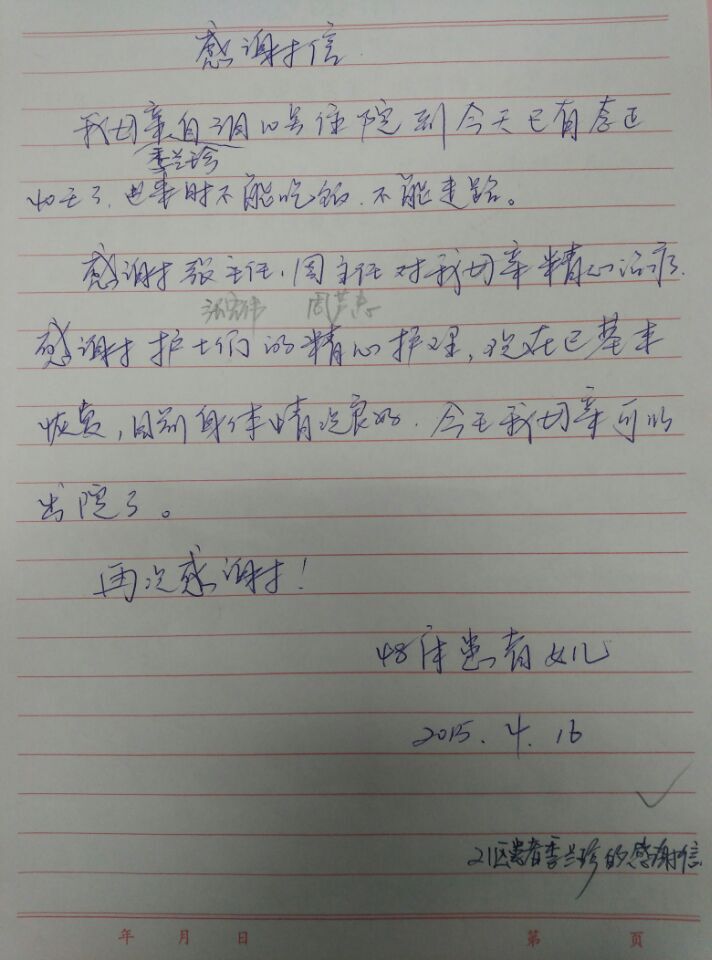 感谢信
我母亲自调以来住院到今天已有
季兰珍
40天了.进来时不能吃饭.不能走路。
感谢张主任.周主任对我母亲精心治疗.
感谢护士们的精心护理,现在已基本
恢复,目前身体情况良好.今天我母亲可以
出院了。
再次感谢!
48床患者女儿
2015.4.16
21区患者季兰珍的感谢信
年 月 日 第 页